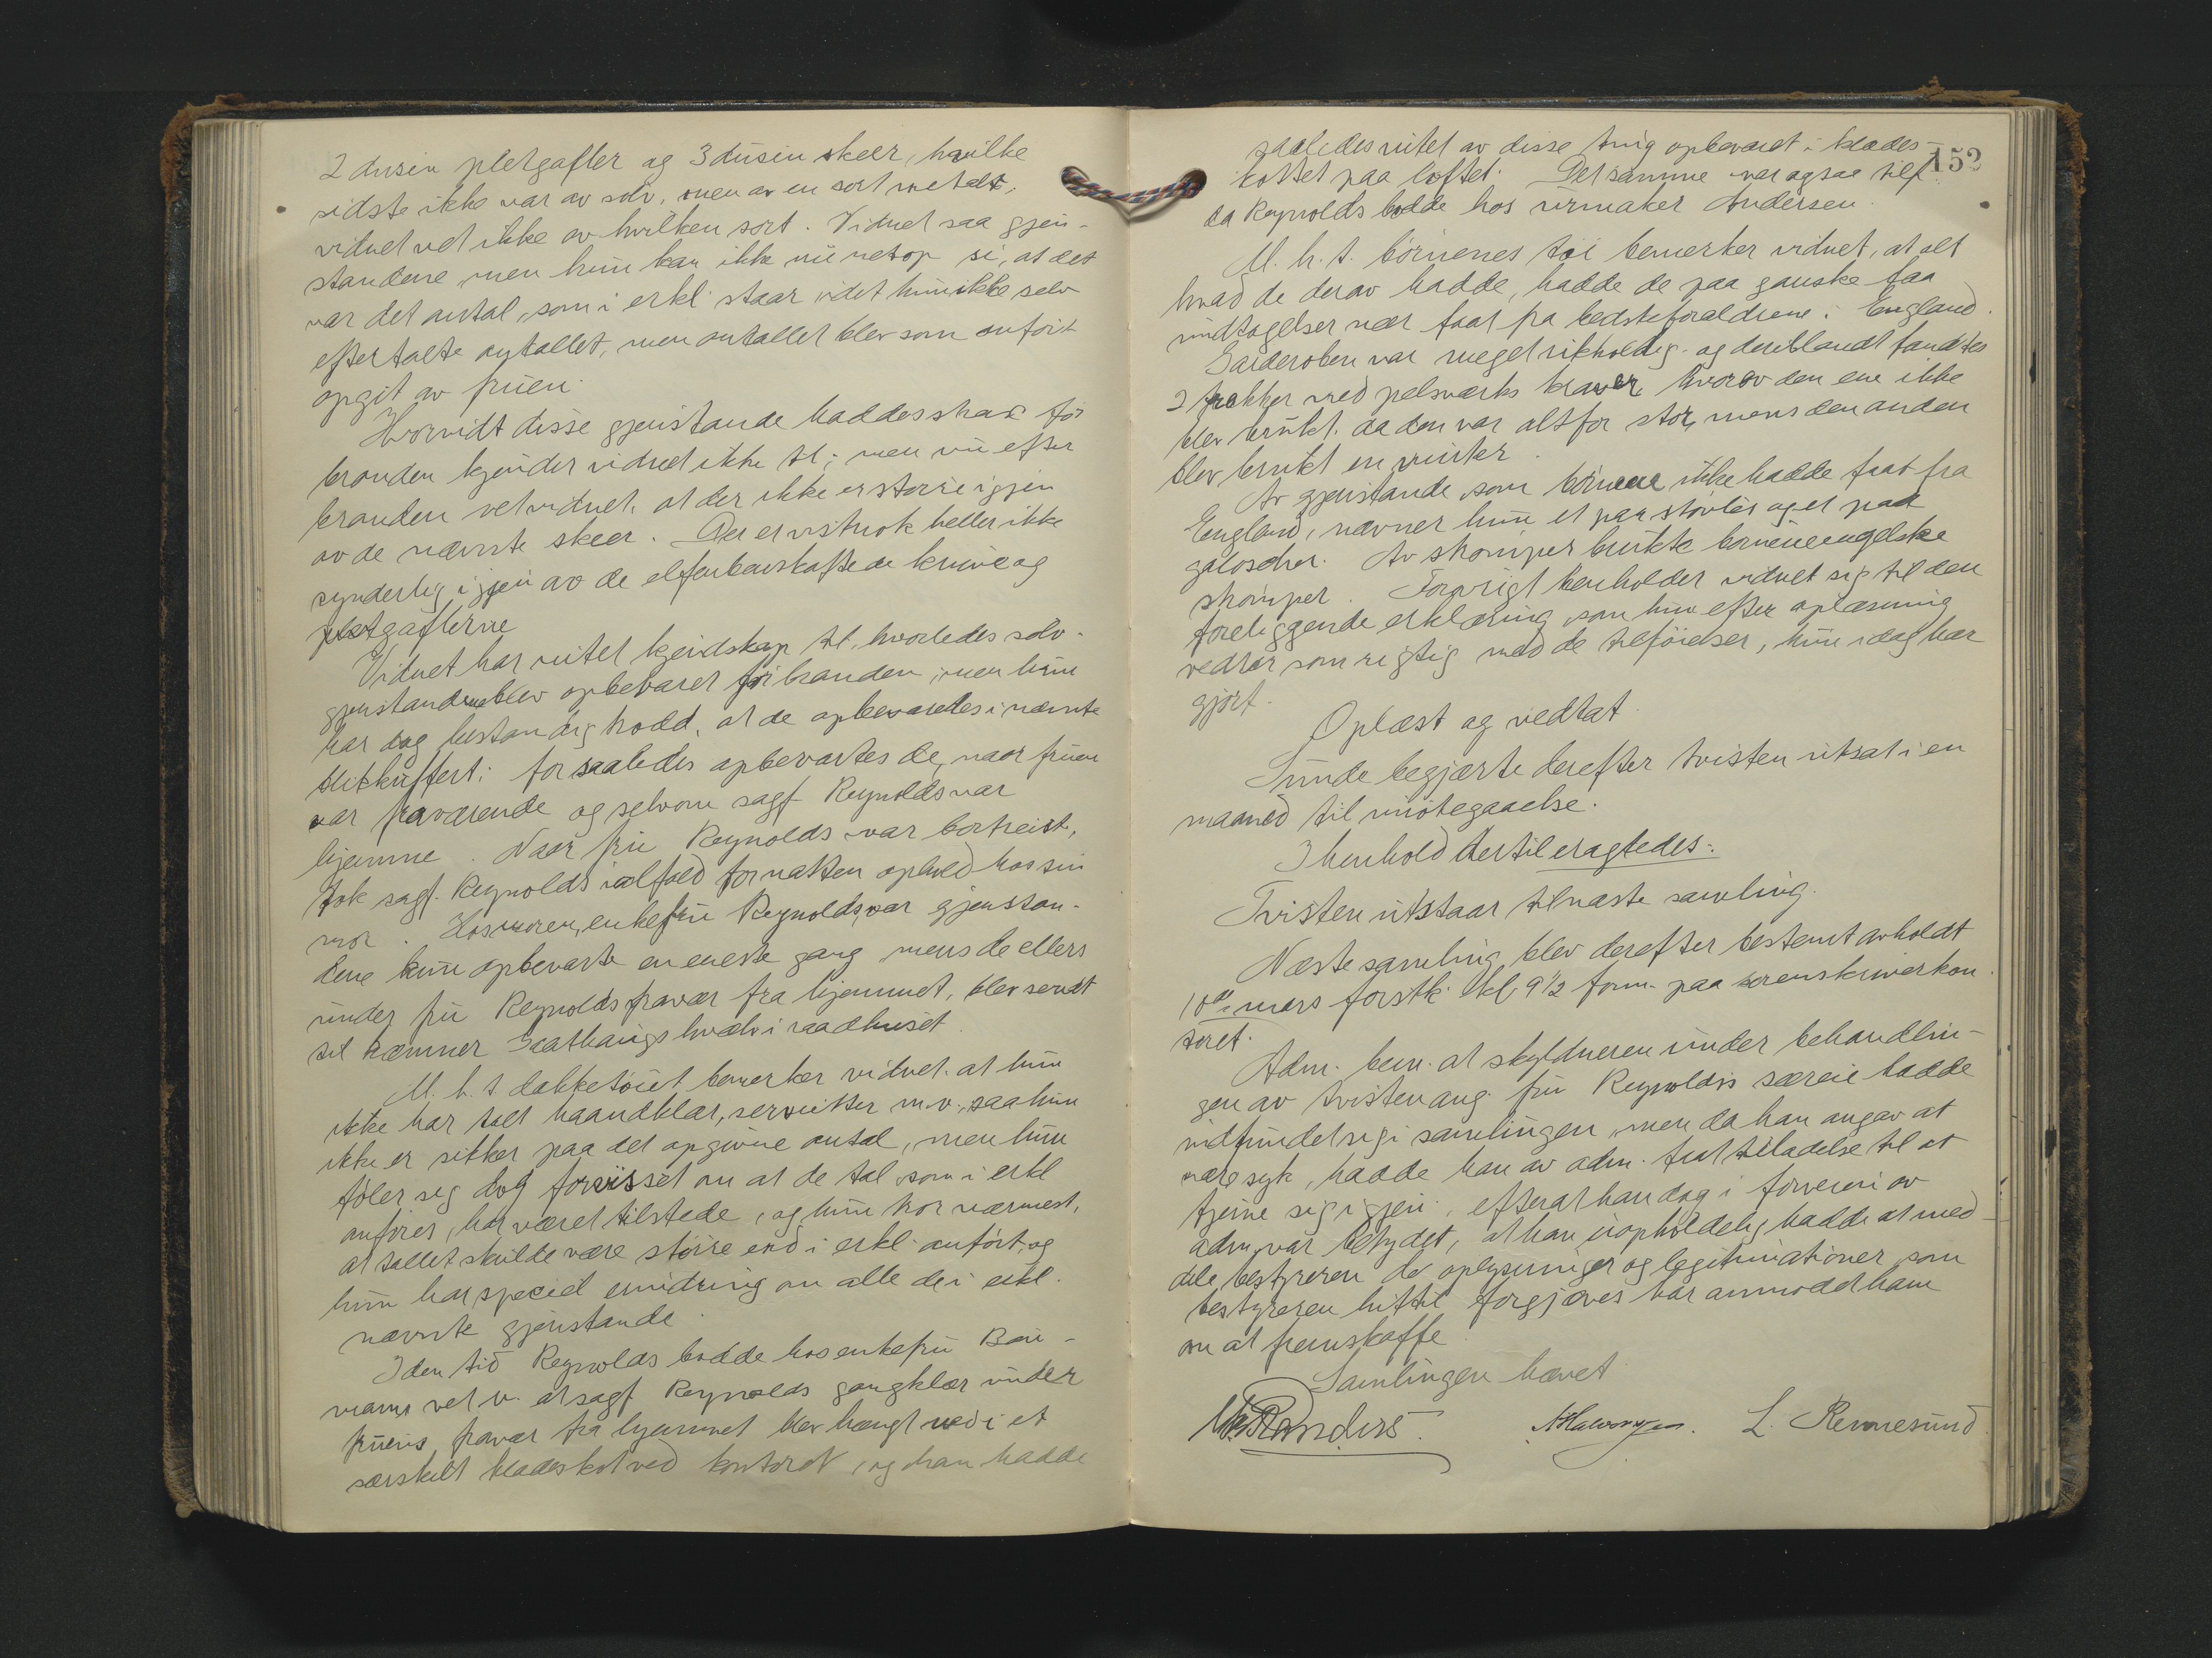 2 dusin pletgafler og 3 dusin skeer, hvilke
sidste ikke var av sølv, men av en sort metal,
vidnet vet ikke av hvilken sort. Vidnet saa gjen-
standene men hun kan ikke nu netop si, at det
var det antal, som i erkl. staar idet hun ikke selv
eftertalte antallet, men antallet blev som anført
opgit av fruen.
Hvorvidt disse gjenstande haddes straks før
branden kjender vidnet ikke til; men nu efter
branden vet vidnet, at der ikke er større igjen
av de nævnte skeer. Der er vistnok heller ikke
synderlig igjen av de elfenbenskaftede knive og
pletgaflerne
Vidnet har intet kjendskap til, hvorledes sølv-
gjenstandene blev opbevaret før branden, men hun
har dog bestandig trodd, at de opbevaredes i nævnte
stetkuffert; for saaledes opbevartes de, naar fruen
var fraværende og selvom sagf. Reynolds var
hjemme. Naar fru Reynolds var bortreist,
tok sagf. Reynolds ialfald for natten ophold hos sin
mor. Hos moren, enkefru Reynolds, var gjenstan-
dene kun opbevarte en eneste gang mens de ellers
under fru Reynolds fravær fra hjemmet, blev sendt
til kæmner Taathaugs hvælv i raadhuset.
M. h. t. dækketøiet bemerker vidnet at hun
ikke har talt haandklær, servietter m.v., saa hun
ikke er sikker paa det opgivne antal, men hun
føler sig dog forvisset om at de tal som i erkl
anføres, har været tilstede, og hun tror nærmest,
at tallet skulde være større end i erkl. anført, og
hun har speciel erindring om alle de i erkl.
nævnte gjenstande.
I den tid Reynolds bodde hos enkefru Bau-
mann vet v. at sagf Reynolds gangklær under
fruens fravær fra hjemmet blev hængt ned i et
særskilt klædeskot ved kontoret, og han hadde
152
saaledes intet av disse ting opbevaret i klædes-
kottet paa loftet. Det samme var ogsaa tilf.
da Reynolds bodde hos urmaker Andersen.
M. h. t. børnenes tøi bemerker vidnet, at alt
hvad de derav hadde, hadde de paa ganske faa
undtagelser nær faat fra bedsteforældrene i England.
Garderoben var meget rikholdig og deriblandt fandtes
2 frakker med pelsværks kraver, hvorav den ene ikke
blev brukt, da den var altfor stor, mens den anden
blev brukt en vinter.
Av gjenstande, som børnene ikke hadde faat fra
England, nævner hun et par støvler og et par
galoscher. Av strømper brukte børnene engelske
strømper. Forøvrigt henholder vidnet sig til den
foreliggende erklæring, som hun efter oplæsning
vedtar som rigtig med de tilføielser, hun idag har
gjort.
Oplæst og vedtat.
Sunde begjærte derefter tvisten utsat i en
maaned til imøtegaaelse.
I henhold dertil eragtedes:
Tvisten utstaar til næste samling.
Næste samling blev derefter bestemt avholdt
10de mars førstk. kl 9 1/2 form. paa sorenskriverkon-
toret.
Adm. bem. at skyldneren under behandlin-
gen av tvisten ang. fru Reynolds's særeie hadde
indfundet sig i samlingen, men da han angav at
være syk, hadde han av adm. faat tilladelse til at
fjerne sig igjen, efterat han dog i forveien av
adm. var betydet, at han uopholdelig hadde at med-
dele bestyreren de oplysninger og legitimationer som
bestyreren hittil forgjæves har anmodet ham
om at fremskaffe
Samlingen hævet
Randers. A Halvorsen. L. Rennesund